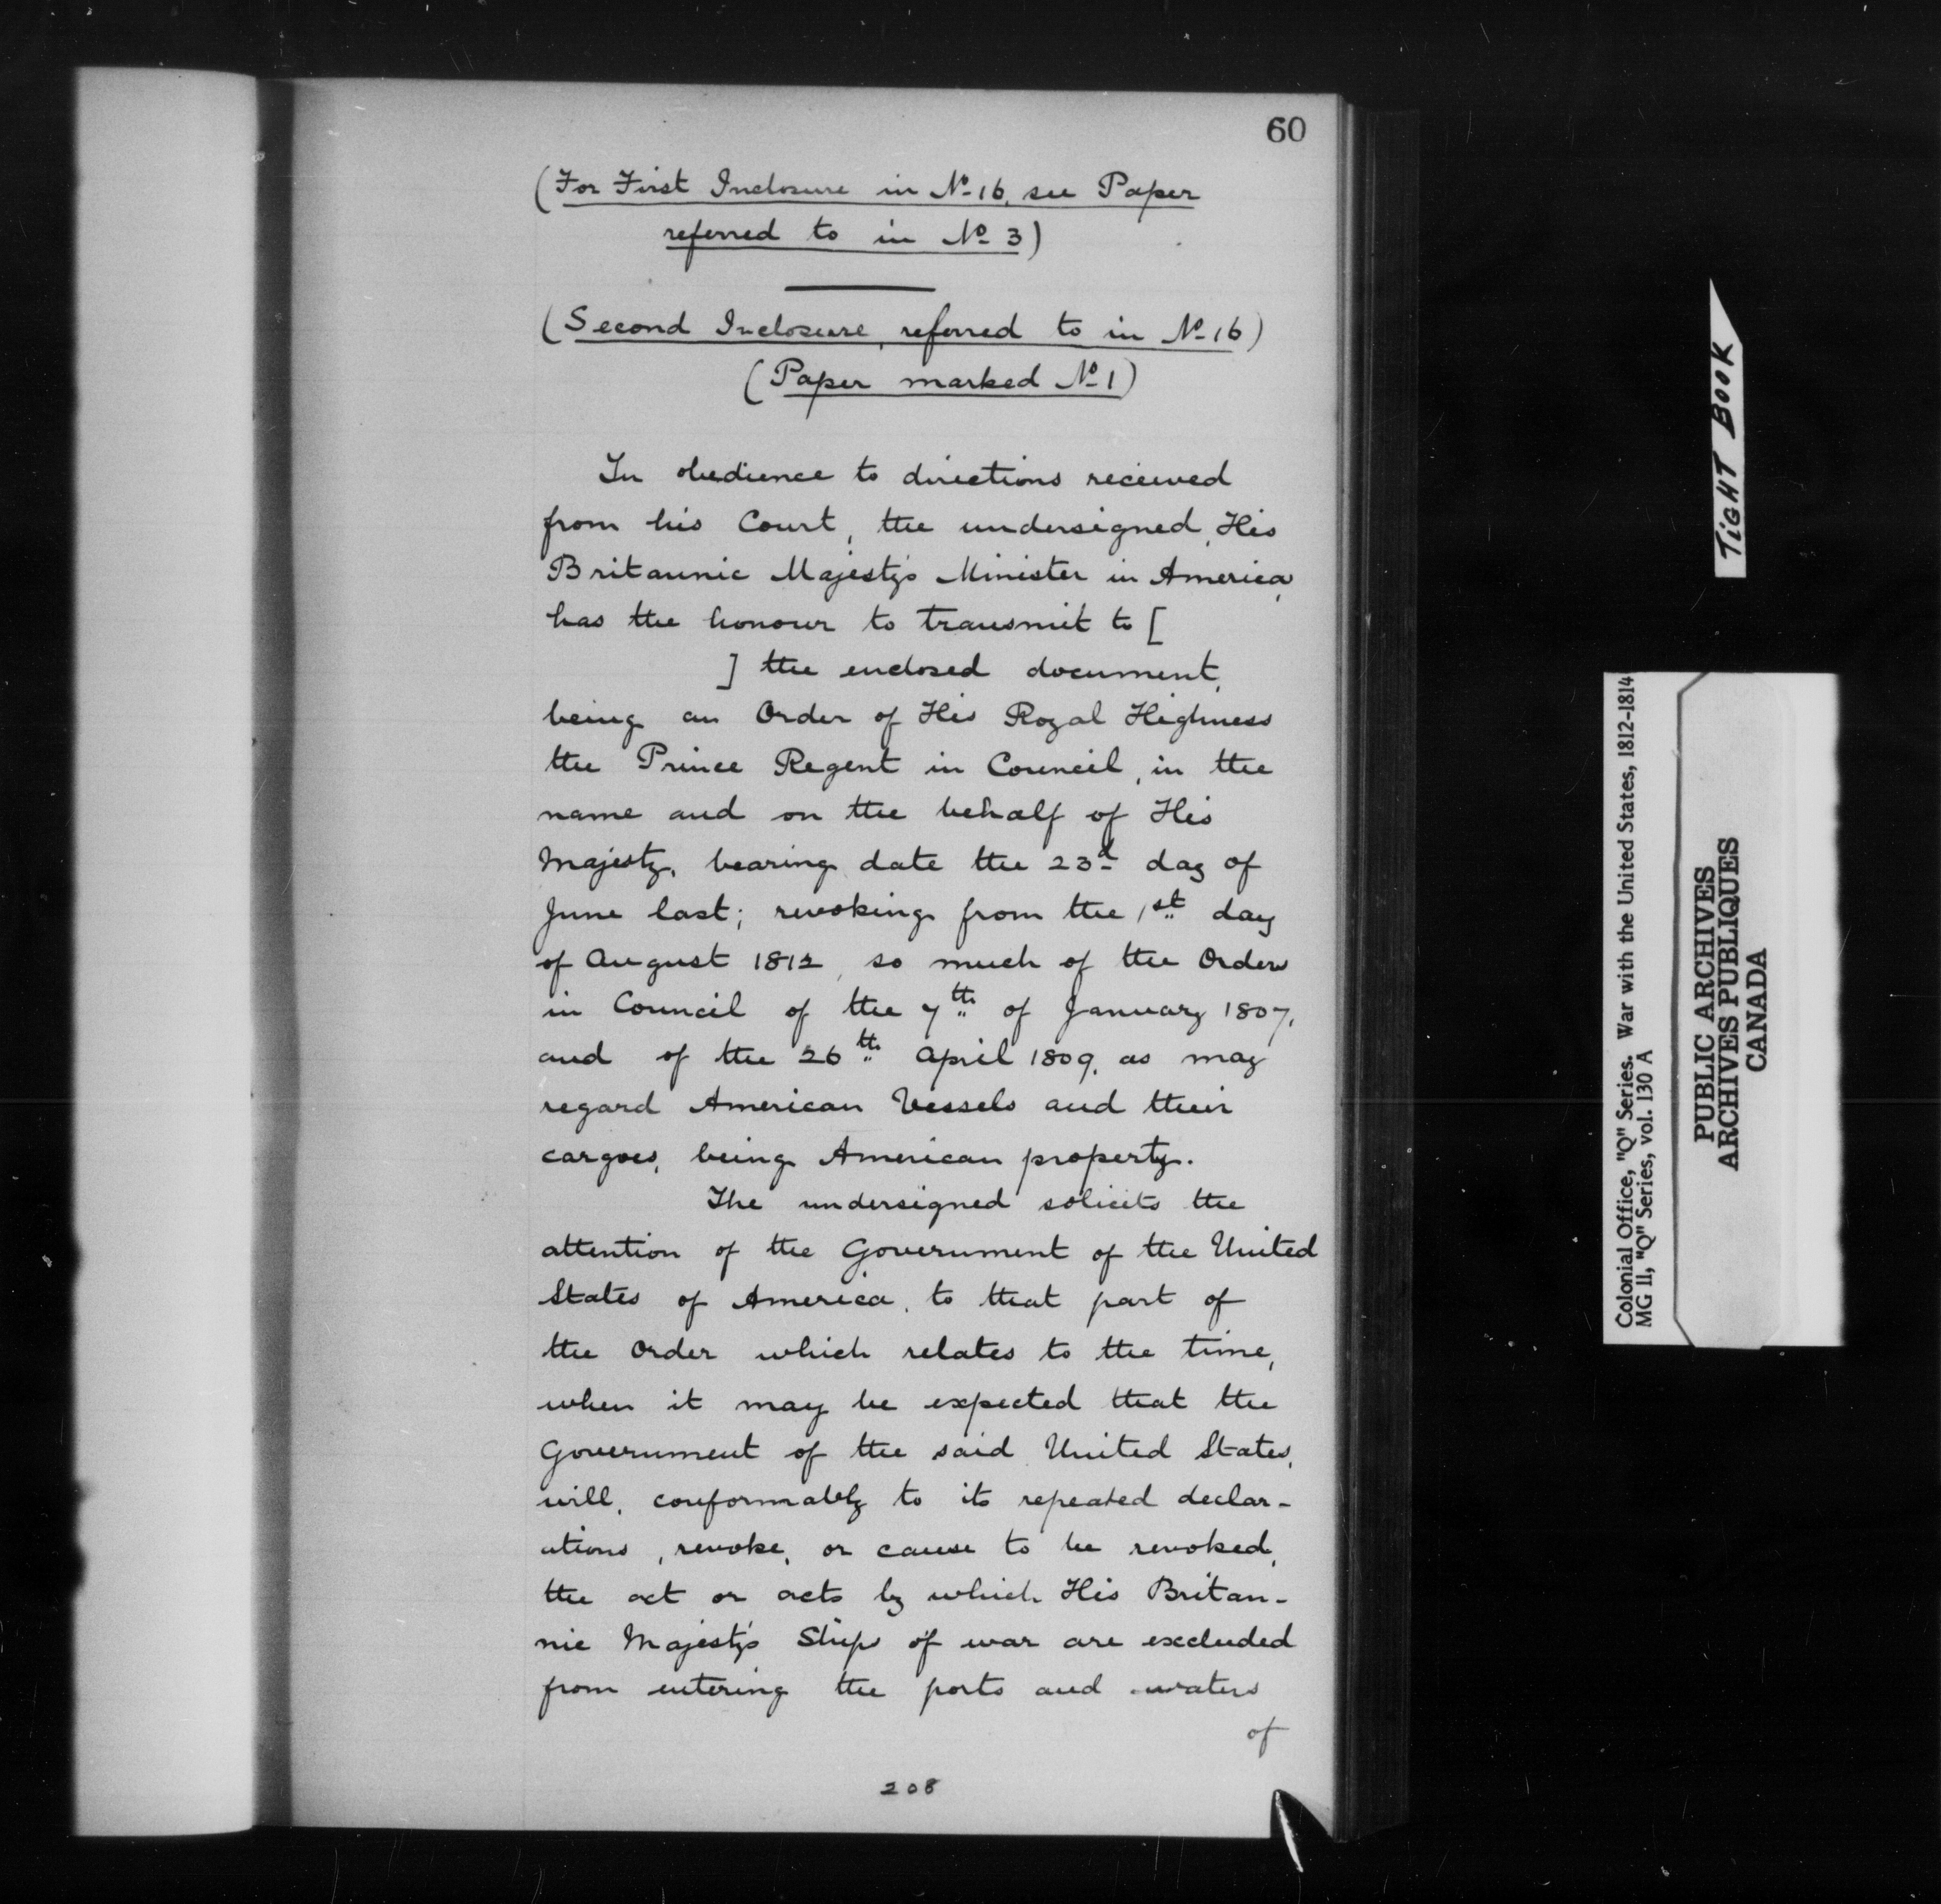 60
(For First Inclosure in No 16, see Paper
referred to in No 3)
(Second Inclosure, referred to in No 16)
(Paper marked No 1)
In obedience to directions received
from his Court, the undersigned, His
Britannic Majesty's Minister in America,
has the honour to transmit to [
] the enclosed document,
being an Order of His Royal Highness
the Prince Regent in Council, in the
name and on the behalf of His
Majesty, bearing date the 23d day of
June last; revoking from the 1st day
of August 1812, so much of the Orders
in Council of the 7th of January 1807,
and of the 26th April 1809, as may
regard American Vessels and their
cargoes, being American property.
The undersigned solicits the
attention of the Government of the United
States of America, to that part of
the Order which relates to the time,
when it may be expected that the
Government of the said United States,
will, conformably to its repeated declar-
ations, revoke, or cause to be revoked,
the act or acts by which His Britan-
nic Majesty's Ships of war are excluded
from entering the ports and waters
of
208
TIGHT BOOK
Colonial Office, "Q" Series. War with the United States, 1812-1814
MG II, "Q" Series, vol. 130 A
PUBLIC ARCHIVES
ARCHIVES PUBLIQUES
CANADA